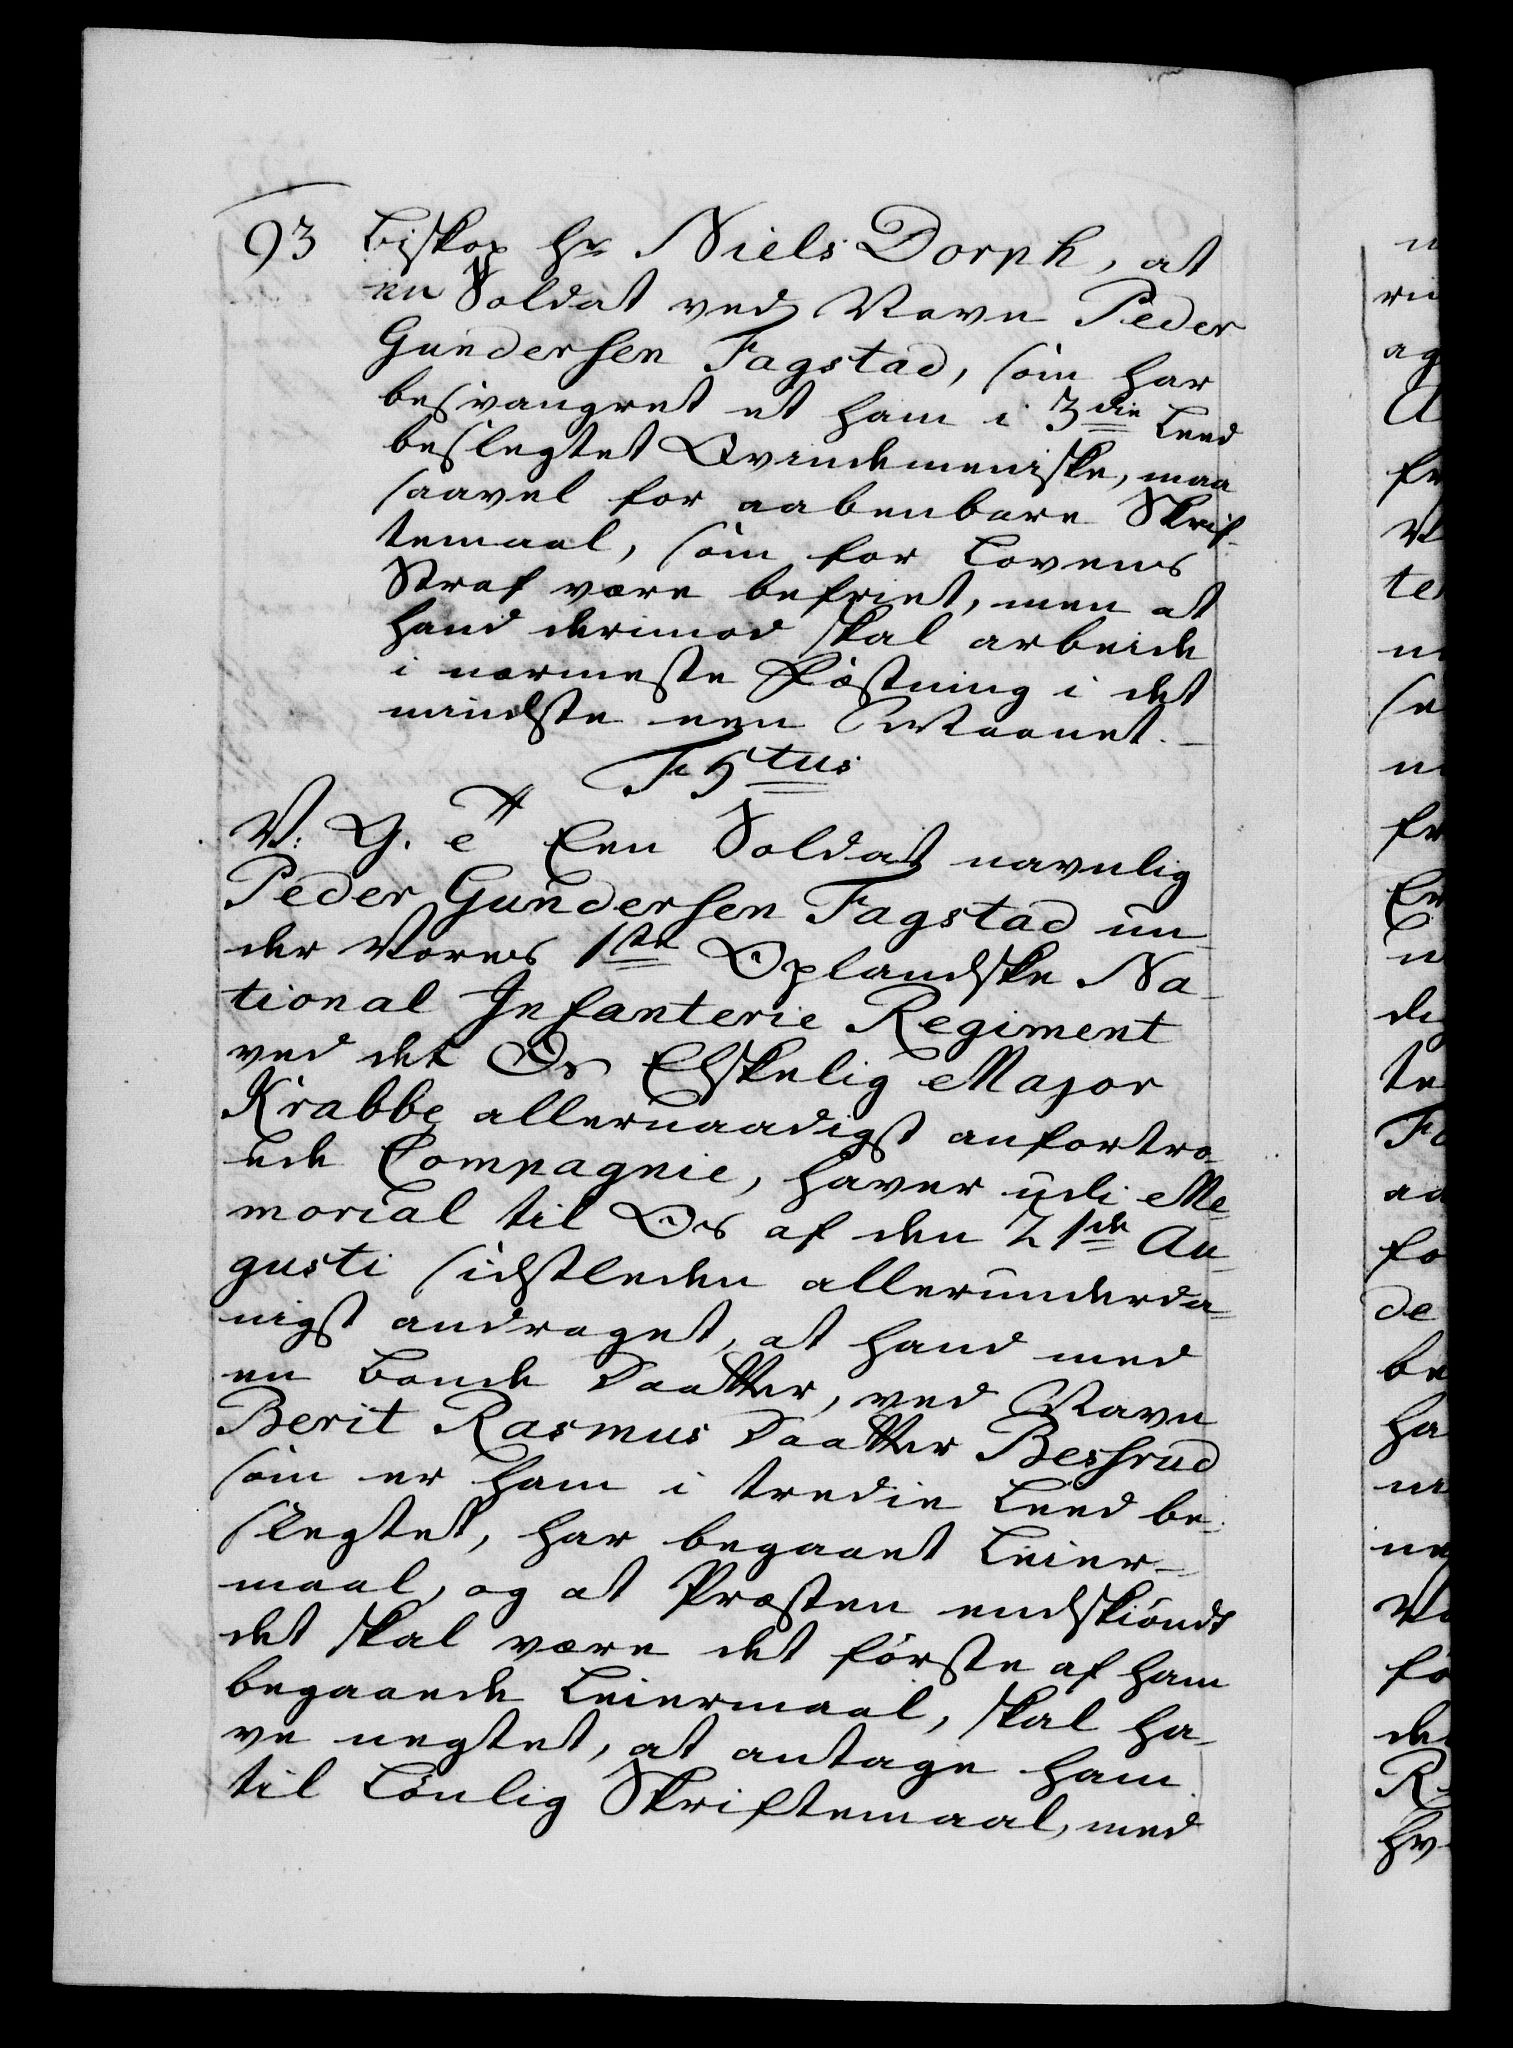 93 Biskop Hr Niels Dorph, at
en Soldat ved Navn Peder
Gundersen Fagstad, som har
besvangret et ham i 3die Leed
beslegtet Qvindemeniske, maa
saavel for aabenbare Skrif-
temaal, som for Lovens
Straf være befriet, men at
hand derimod skal arbeide
i nærmeste Fæstning i det
mindste een Maanet.
F 5tus
V. G. e Een Soldat navnlig
Peder Gundersen Fagstad un-
der Vores 1ste Oplandske Na-
tional Infanterie Regiment
ved det Os Elskelig Major
Krabbe allernaadigst anfortro-
ede Compagnie, haver udi Me-
morial til Os af den 21de Au-
gusti sidstleden allerunderda-
nigst andraget, at hand med
en Bonde Daatter, ved Navn
Berit Rasmus Daatter Besserud
som er ham i tredie Leed be-
slegtet, har begaaet Leier-
maal, og at Præsten endskiöndt
det skal være det förste af ham
begaaede Leiermaal, skal ha-
ve negtet, at antage ham
til Lönlig Skriftemaal, med